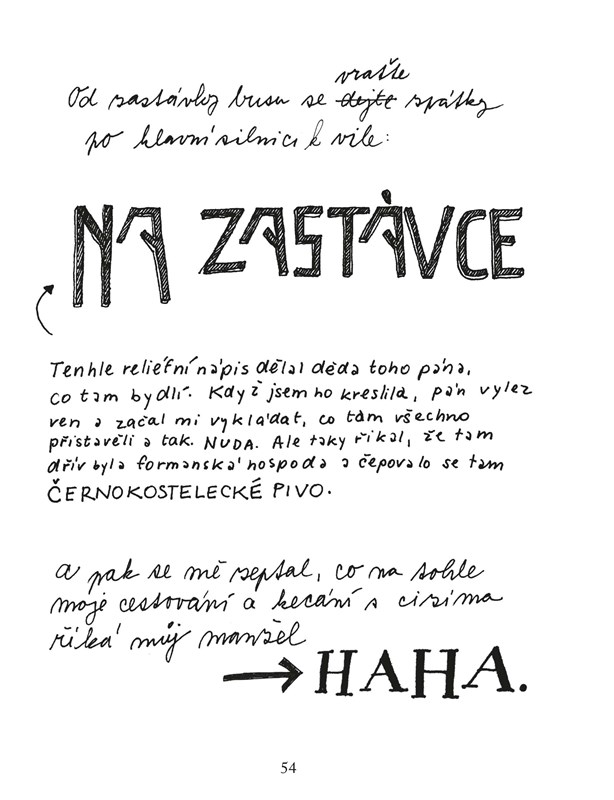 vraťte
Od zastávky busu se dejte zpátky
po hlavní silnici k vile:
NA ZASTÁVCE
Tenhle reliéfní nápis dělal děda toho pána,
co tam bydlí. Když jsem ho kreslila, pán vylez
ven a začal mi vykládat, co tam všechno
přistavěli a tak. NUDA. Ale taky říkal, že tam
dřív byla formanská hospoda a čepovalo se tam
ČERNOKOSTELECKÉ PIVO.
a pak se mě zeptal, co na tohle
moje cestování a kecání s cizíma
říká můj manžel
→ HAHA.
54